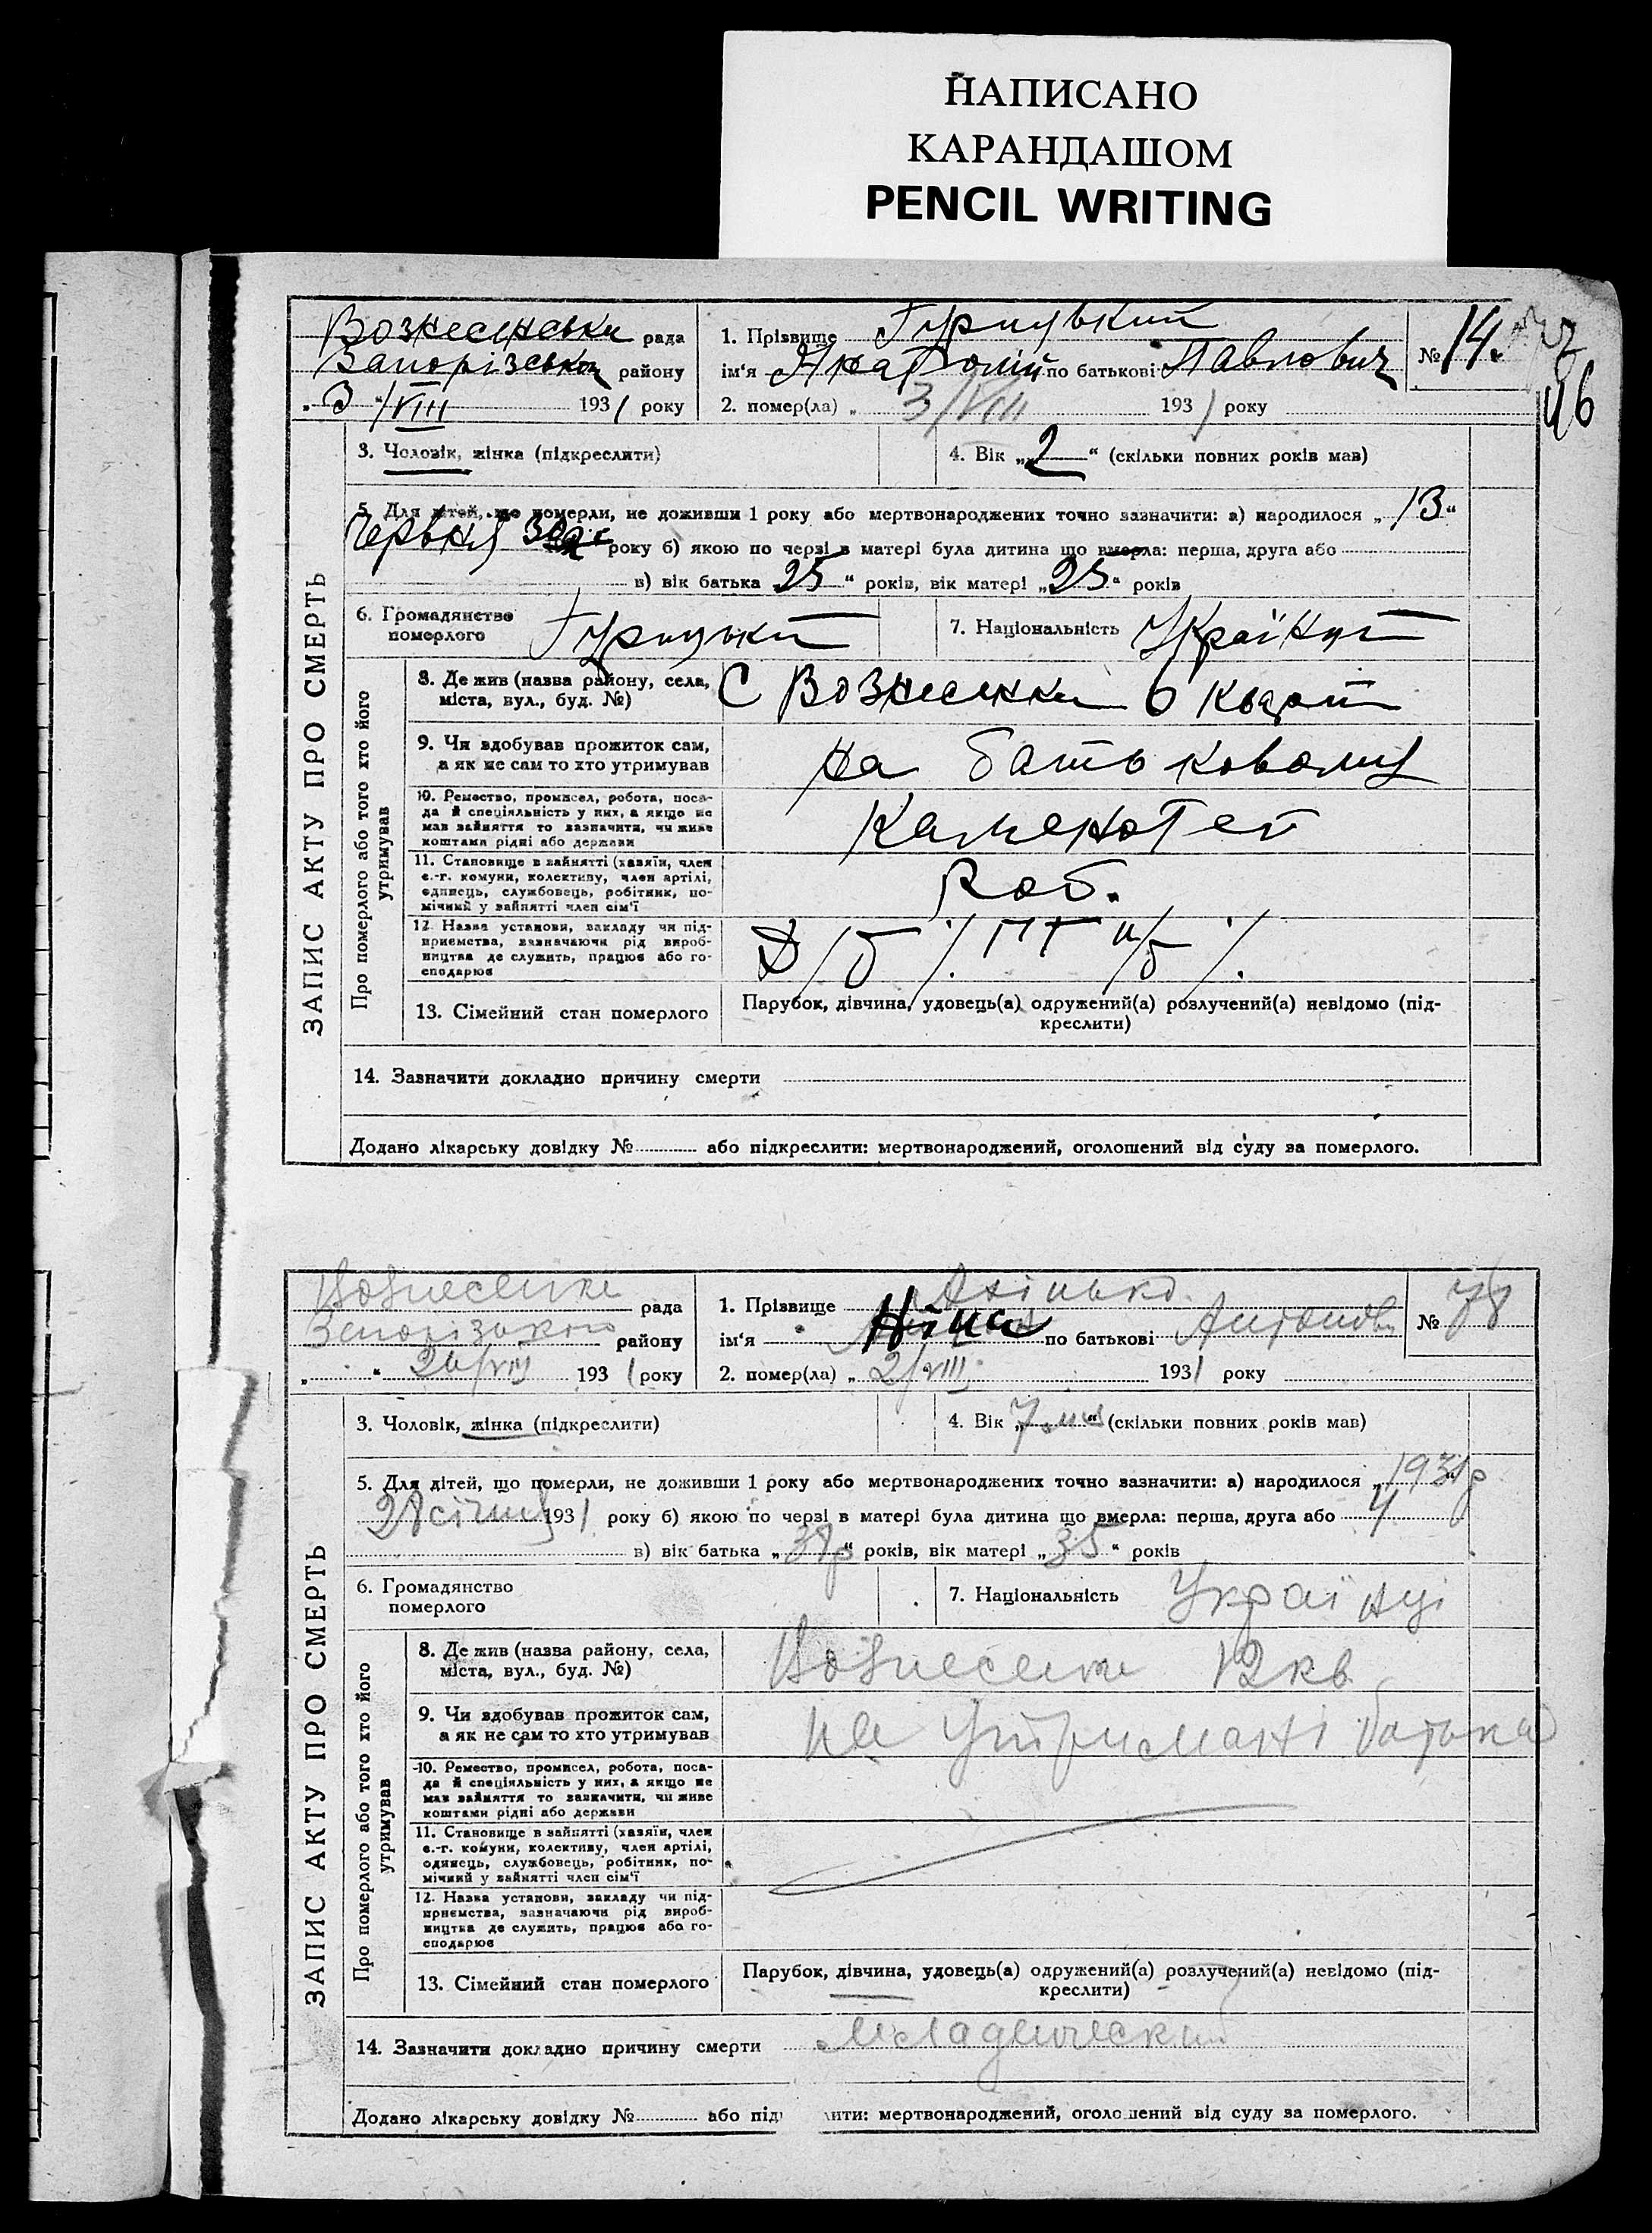 НАПИСАНО
КАРАНДАШОМ
PENCIL WRITING
ЗАПИС АКТУ ПРО СМЕРТЬ
Вознесенська рада
Запорізького району
„3“ /VIII 1931 року
1. Прізвище
ім'я Анатолій по батькові Павлович
2. помер(ла) „3/VIII 1931 року
№ 14
46
3. Чоловік, жінка (підкреслити)
4. Вік „2“ (скільки повних років мав)
5. Для дітей, що померли, не доживши 1 року або мертвонароджених точно зазначити: а) народилося „13“
Червня року б) якою по черзі в матері була дитина що вмерла: перша, друга або
в) вік батька 25“ років, вік матері „25“ років
6. Громадянство
померлого
7. Національність
Про померлого або того хто його
утримував
8. Де жив (назва району, села,
міста, вул., буд. №)
С Вознесенка 6 кварт
9. Чи здобував прожиток сам,
а як не сам то хто утримував
на батьковому
10. Ремество, промисел, робота, поса-
да й спеціяльність у них, а якщо не
мав заняття то зазначити, чи живе
коштами рідні або держави
Каменотес
11. Становище в зайнятті (хазяїн, член
с.-г. комуни, колективу, член артілі,
одинець, службовець, робітник, по-
мічний у зайнятті член сім'ї
Роб.
12. Назва установи, закладу чи під-
приємства, зазначаючи рід вироб-
ництва де служить, працює або го-
сподарює
13. Сімейний стан померлого
Парубок, дівчина, удовець(а) одружений(а) розлучений(а) невідомо (під-
креслити)
14. Зазначити докладно причину смерти
Додано лікарську довідку № або підкреслити: мертвонароджений, оголошений від суду за померлого.
ЗАПИС АКТУ ПРО СМЕРТЬ
Вознесенка рада
Запорізького району
„ “ 1931 року
1. Прізвище
ім'я Ніна по батькові Антонов
2. помер(ла) „2/VIII 1931 року
№ 78
3. Чоловік, жінка (підкреслити)
4. Вік „7 міс“ (скільки повних років мав)
5. Для дітей, що померли, не доживши 1 року або мертвонароджених точно зазначити: а) народилося „1931р
28 січня 1931 року б) якою по черзі в матері була дитина що вмерла: перша, друга або 4
в) вік батька „ “ років, вік матері „35“ років
6. Громадянство
померлого
7. Національність Українці
Про померлого або того хто його
утримував
8. Де жив (назва району, села,
міста, вул., буд. №)
Вознесенка 12 кв
9. Чи здобував прожиток сам,
а як не сам то хто утримував
на утримані батька
10. Ремество, промисел, робота, поса-
да й спеціяльність у них, а якщо не
мав заняття то зазначити, чи живе
коштами рідні або держави
11. Становище в зайнятті (хазяїн, член
с.-г. комуни, колективу, член артілі,
одинець, службовець, робітник, по-
мічний у зайнятті член сім'ї
12. Назва установи, закладу чи під-
приємства, зазначаючи рід вироб-
ництва де служить, працює або го-
сподарює
13. Сімейний стан померлого
Парубок, дівчина, удовець(а) одружений(а) розлучений(а) невідомо (під-
креслити)
14. Зазначити докладно причину смерти Младенческий
Додано лікарську довідку № або під ити: мертвонароджений, оголошений від суду за померлого.